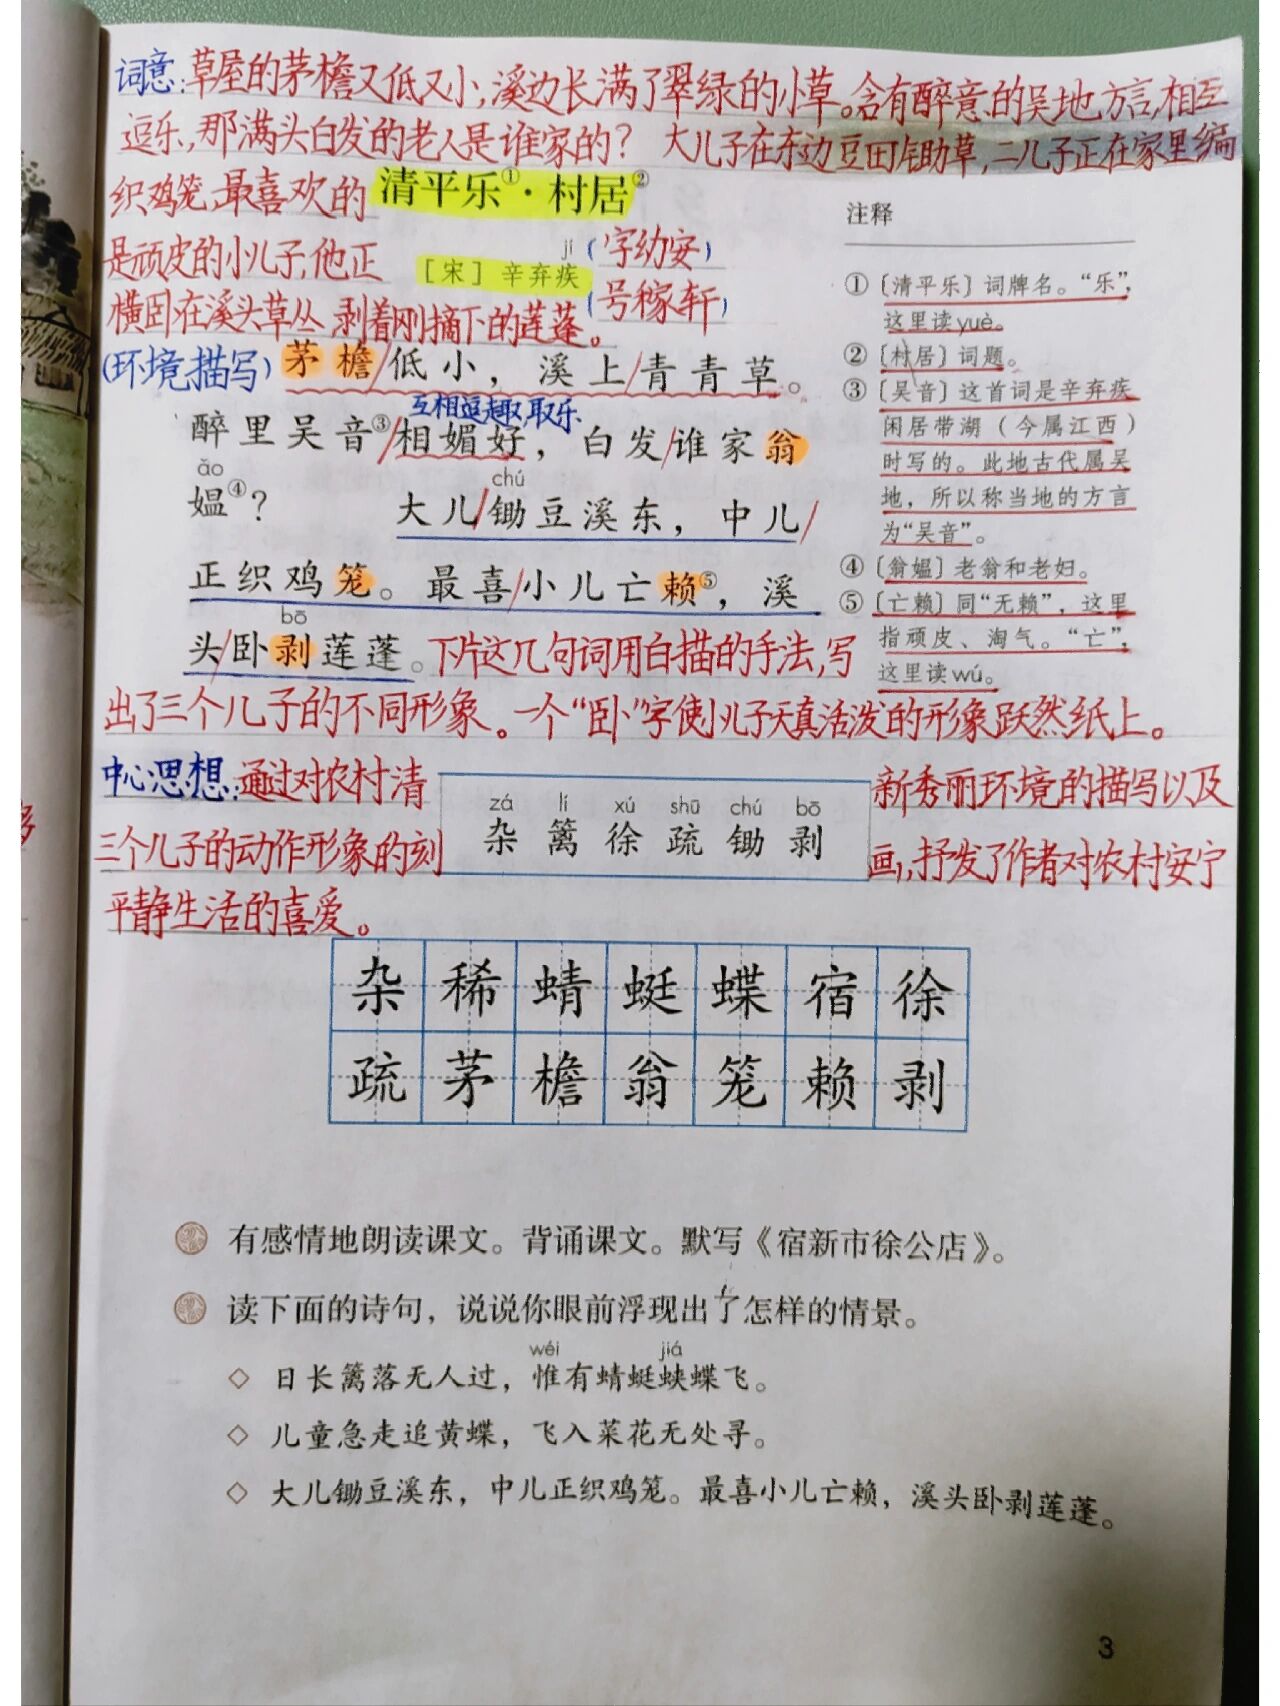 词意:草屋的茅檐又低又小,溪边长满了翠绿的小草。含有醉意的吴地方言,相互
逗乐,那满头白发的老人是谁家的? 大儿子在东边豆田锄草,二儿子正在家里编
织鸡笼,最喜欢的
清平乐①·村居②
是顽皮的小儿子,他正
jí
[宋] 辛弃疾
(字幼安)
(号稼轩)
横卧在溪头草丛,剥着刚摘下的莲蓬。
(环境描写)
茅檐/低小,溪上/青青草。
互相逗趣,取乐
醉里吴音③/相媚好,白发/谁家翁
ǎo chú
媪④? 大儿/锄豆溪东,中儿/
正织鸡笼。最喜/小儿亡赖⑤,溪
bō
头/卧剥莲蓬。
注释
①〔清平乐〕词牌名。“乐”,
这里读yuè。
②〔村居〕词题。
③〔吴音〕这首词是辛弃疾
闲居带湖(今属江西)
时写的。此地古代属吴
地,所以称当地的方言
为“吴音”。
④〔翁媪〕老翁和老妇。
⑤〔亡赖〕同“无赖”,这里
指顽皮、淘气。“亡”,
这里读wú。
下片这几句词用白描的手法,写
出了三个儿子的不同形象。一个“卧”字使小儿子天真活泼的形象跃然纸上。
中心思想:通过对农村清新秀丽环境的描写以及
三个儿子的动作形象的刻画,抒发了作者对农村安宁
平静生活的喜爱。
zá lí xú shū chú bō
杂 篱 徐 疏 锄 剥
杂 稀 蜻 蜓 蝶 宿 徐
疏 茅 檐 翁 笼 赖 剥
有感情地朗读课文。背诵课文。默写《宿新市徐公店》。
读下面的诗句,说说你眼前浮现出了怎样的情景。
wéi jiá
◇ 日长篱落无人过,惟有蜻蜓蛱蝶飞。
◇ 儿童急走追黄蝶,飞入菜花无处寻。
◇ 大儿锄豆溪东,中儿正织鸡笼。最喜小儿亡赖,溪头卧剥莲蓬。
3